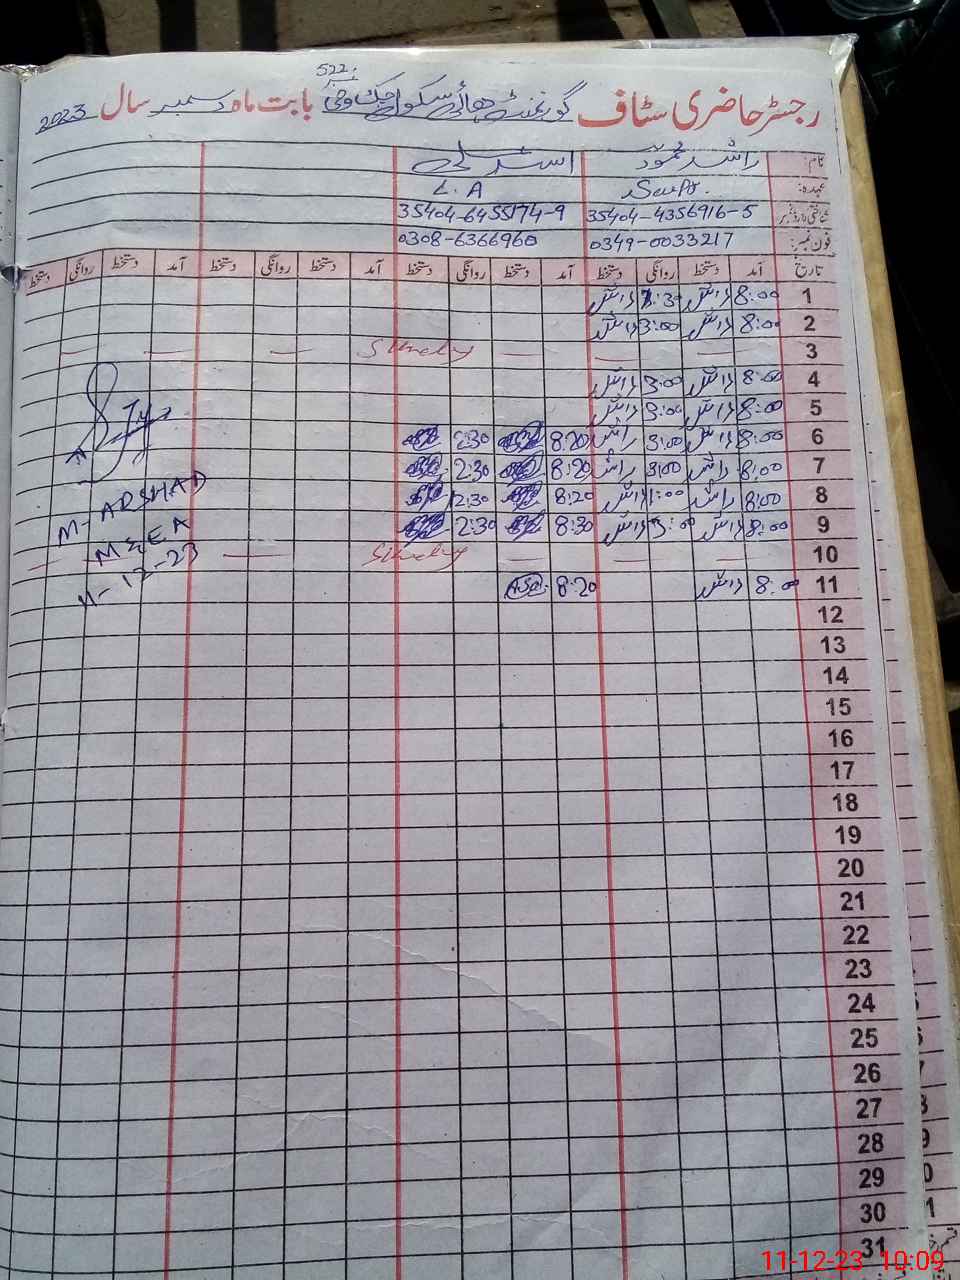 522
رجسٹر حاضری سٹاف گورنمنٹ ہائی سکول چک بابت ماہ دسمبر سال 2023
نام: راشد محمود
عہدہ: L.A
شناختی کارڈ نمبر 35404-4356916-5 35404-6455174-9
فون نمبر: 0349-0033217 0308-6366960
تاریخ آمد دستخط روانگی دستخط آمد دستخط روانگی دستخط آمد دستخط روانگی دستخط آمد دستخط روانگی دستخط
1 8:00 راشد 1:30 راشد
2 8:00 راشد 3:00 راشد
3 Sunday
4 8:00 راشد 3:00 راشد
5 8:00 راشد 3:00 راشد
6 8:00 راشد 3:00 راشد 8:20 2:30
7 8:00 راشد 3:00 راشد 8:20 2:30
8 8:00 راشد 1:00 راشد 8:20 12:30
9 8:00 راشد 3:00 راشد 8:30 2:30
10 Sunday
11 8:00 راشد 8:20
M. ARSHAD
M&EA
11-12-23
12
13
14
15
16
17
18
19
20
21
22
23
24
25
26
27
28
29
30
31
11-12-23 10:09